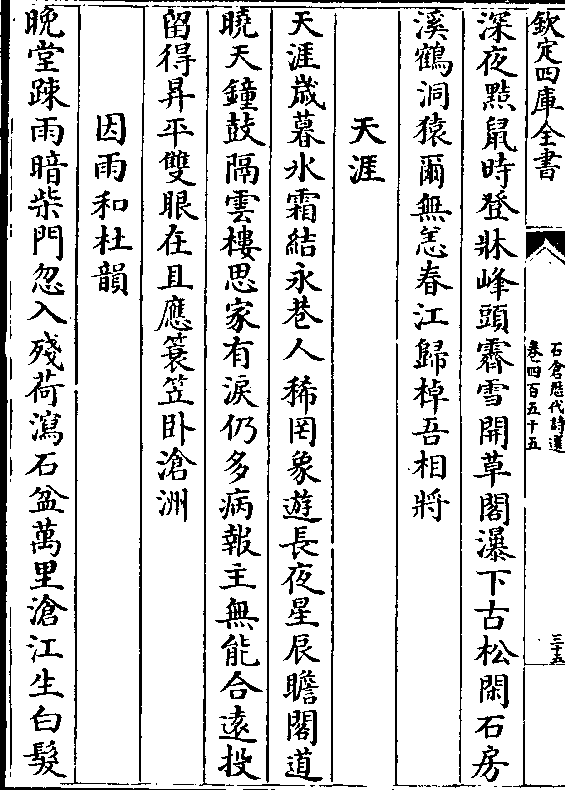 欽定四庫全書
石倉歷代詩選
卷四百五十五
三十五
深夜黠鼠時登牀峰頭霽雪開草閣瀑下古松閑石房
溪鶴洞猿爾無恙春江歸棹吾相將
天涯
天涯歳暮氷霜結永巷人稀罔象遊長夜星辰瞻閣道
曉天鐘鼓隔雲樓思家有淚仍多病報主無能合遠投
留得昇平雙眼在且應簑笠卧滄洲
因雨和杜韻
晚堂踈雨暗柴門忽入殘荷瀉石盆萬里滄江生白髮